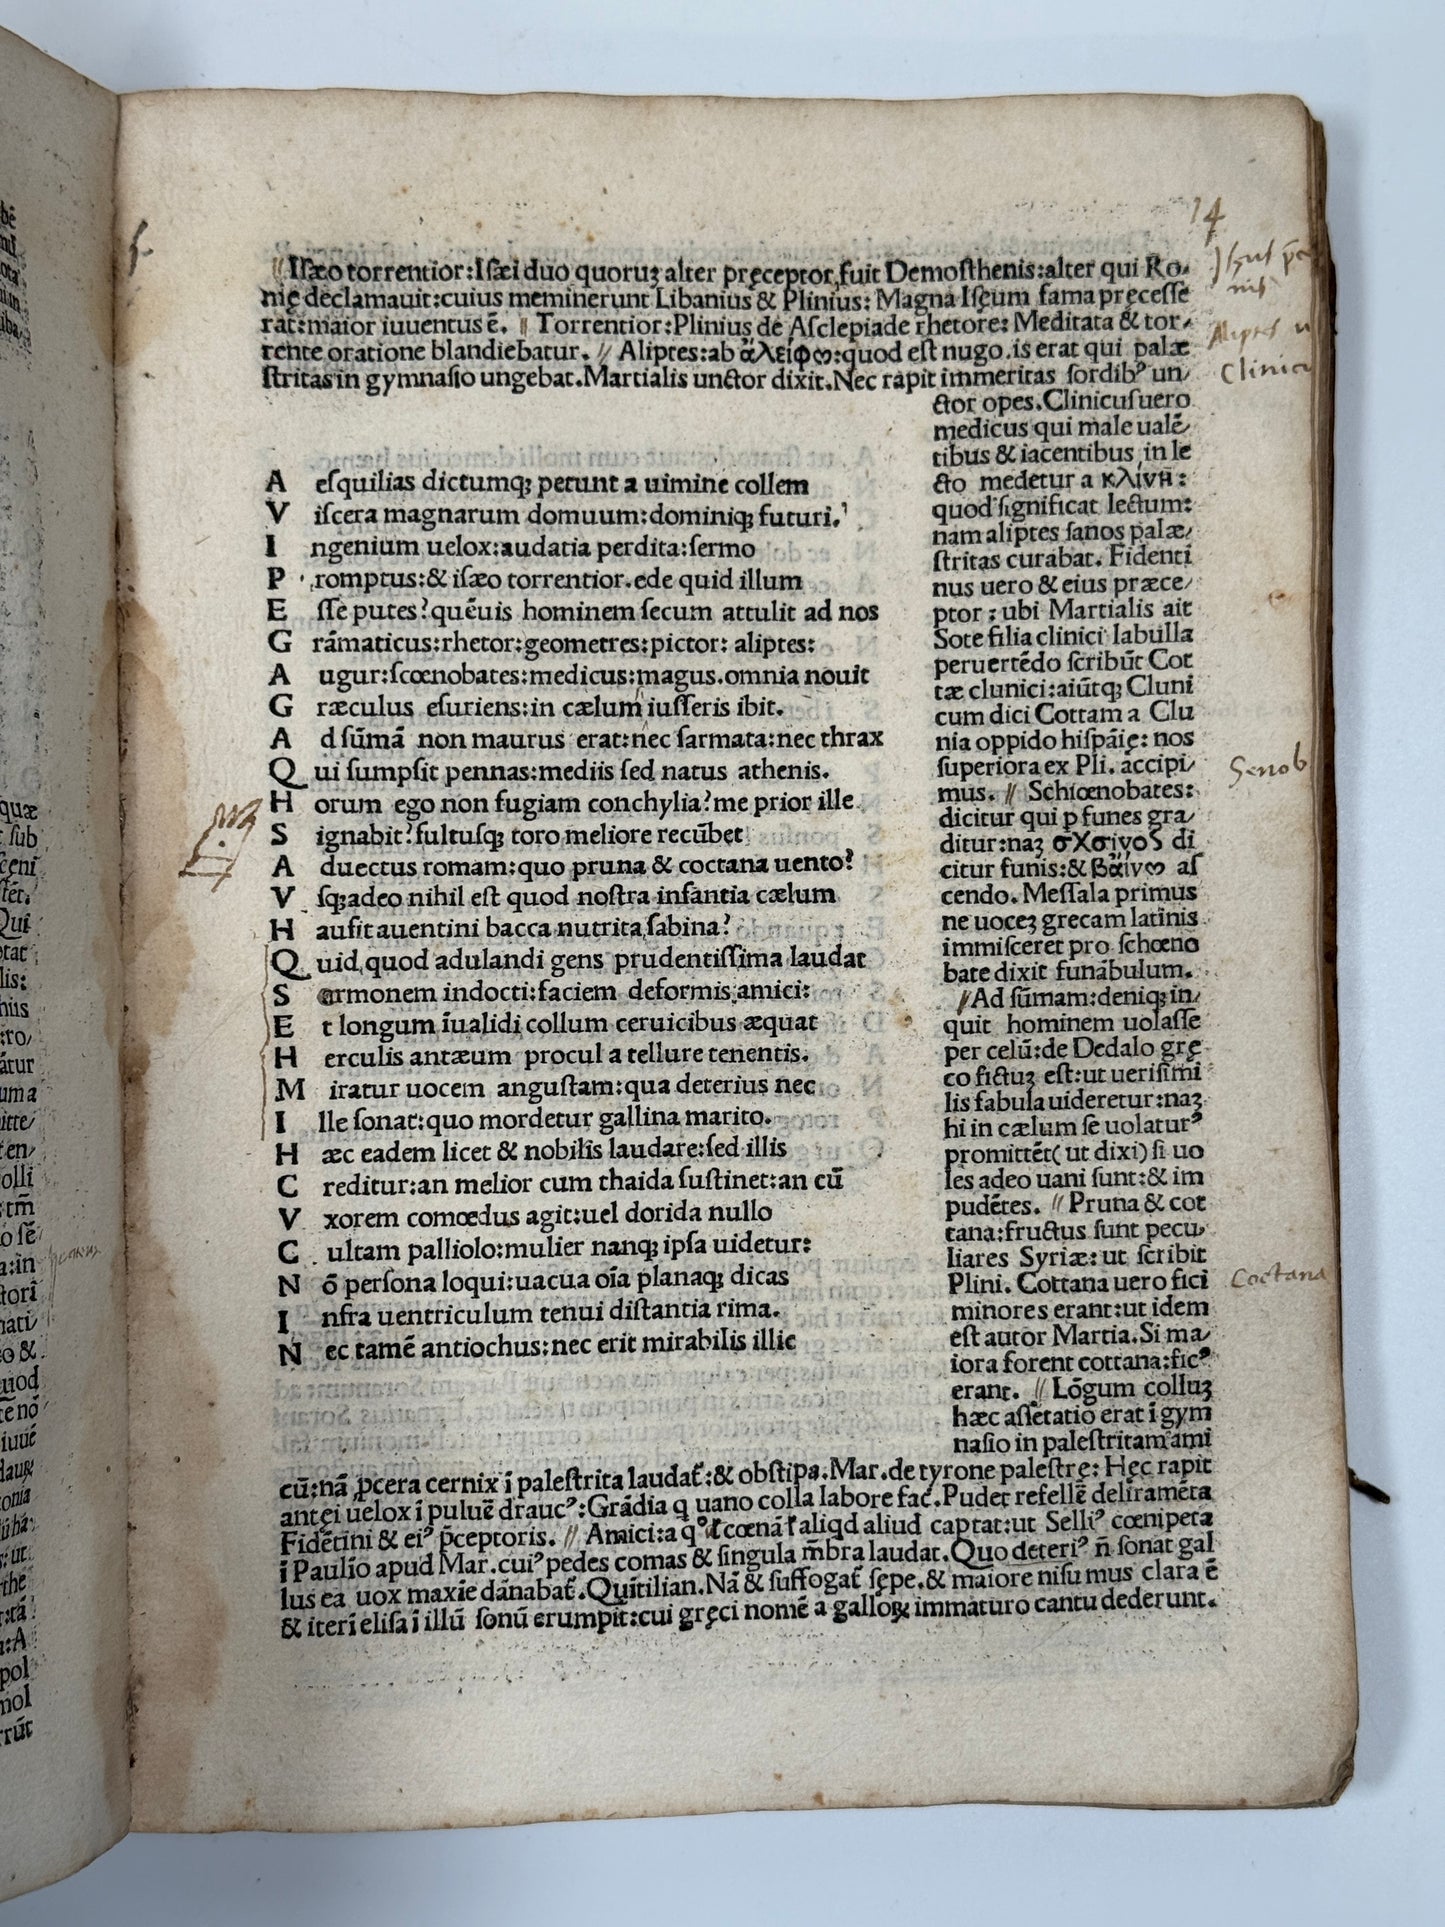 14
// Iſæo torrentior:Iſæi duo quoruꝫ alter pręceptor fuit Demoſthenis:alter qui Ro-
mę declamauit:cuius meminerunt Libanius & Plinius: Magna Iſęum fama pręceſſe
rat:maior iuuentus ē. // Torrentior:Plinius de Aſclepiade rhetore: Meditata & tor-
rente oratione blandiebatur. // Aliptes:ab ἀλείφω:quod eſt nugo.is erat qui palæ
ſtritas in gymnaſio ungebat.Martialis unctor dixit.Nec rapit immeritas ſordibꝰ un-
Aliptes
Clinicu
ctor opes.Clinicuſuero
medicus qui male ualē-
tibus & iacentibus in le
cto medetur a κλίνη:
quod ſignificat lectum:
nam aliptes ſanos palæ-
ſtritas curabat. Fidenti
nus uero & eius præce-
ptor : ubi Martialis ait
Sote filia clinici labulla
peruertēdo ſcribūt Cot
tæ clunici:aiūtqꝫ Cluni
cum dici Cottam a Clu
nia oppido hiſpāię: nos
ſuperiora ex Pli. accipi-
mus. // Schiœnobates:
dicitur qui p funes gra-
ditur:naꝫ σχσίνος di
citur funis:& βαίνω aſ
cendo. Meſſala primus
ne uoceꝫ grecam latinis
immiſceret pro ſchœno
bate dixit funābulum.
// Ad ſūmam:deniqꝫ in-
quit hominem uolaſſe
per celū:de Dedalo grę
co fictuꝫ eſt:ut ueriſimi
lis fabula uideretur:naꝫ
hi in cælum ſe uolaturꝰ
promittēt( ut dixi) ſi uo
les adeo uani ſunt:& im
pudētes. // Pruna & cot
tana:fructus ſunt pecu-
liares Syriæ: ut ſcribit
Plini. Cottana uero fici
minores erant:ut idem
eſt autor Martia.Si ma-
iora forent cottana:ficꝰ
erant. // Lōgum colluꝫ
hæc aſſētatio erat ī gym
naſio in paleſtritam ami
Coctana
A eſquilias dictumqꝫ petunt a uimine collem
V iſcera magnarum domuum:dominiqꝫ futuri.
I ngenium uelox:audatia perdita:ſermo
P romptus:& iſæo torrentior.ede quid illum
E ſſe putes?quēuis hominem ſecum attulit ad nos
G rāmaticus:rhetor:geometres:pictor: aliptes:
A ugur:ſcœnobates:medicus:magus.omnia nouit
G ræculus eſuriens:in cælum iuſſeris ibit.
A d ſūmā non maurus erat:nec ſarmata:nec thrax
Q ui ſumpſit pennas:mediis ſed natus athenis.
H orum ego non fugiam conchylia?me prior ille
S ignabit?fultuſqꝫ toro meliore recūbet
A duectus romam:quo pruna & coctana uento?
V ſqꝫadeo nihil eſt quod noſtra infantia cælum
H auſit auentini bacca nutrita ſabina?
Q uid quod adulandi gens prudentiſſima laudat
S ermonem indocti:faciem deformis amici:
E t longum īualidi collum ceruicibus æquat
H erculis antæum procul a tellure tenentis.
M iratur uocem anguſtam:qua deterius nec
I lle ſonat:quo mordetur gallina marito.
H æc eadem licet & nobis laudare:ſed illis
C reditur:an melior cum thaida ſuſtinet:an cū
V xorem comœdus agit:uel dorida nullo
C ultam palliolo:mulier nanqꝫ ipſa uidetur:
N ō perſona loqui:uacua oīa planaqꝫ dicas
I nfra uentriculum tenui diſtantia rima.
N ec tamē antiochus:nec erit mirabilis illic
cū:nā ꝓcera cernix ī paleſtrita laudat̄:& obſtipa.Mar.de tyrone paleſtrę: Hęc rapit
antęi uelox ī puluē draucꝰ:Grādia q uano colla labore fac̄.Pudet refellē deliramēta
Fidētini & eiꝰ p̄ceptoris. // Amici:a qº t̄ cœnā t̄ aliqd aliud captat:ut Selliꝰ cœnipeta
ī Paulīo apud Mar.cuiꝰ pedes comas & ſingula m̄bra laudat.Quo deteriꝰ n̄ ſonat gal
lus ea uox maxīe dānabat̄.Quītilian.Nā & ſuffogat̄ ſępe.& maiore niſu mus clara ē
& iterī eliſa ī illū ſonū erumpit:cui gręci nomē a galloꝝ immaturo cantu dederunt.